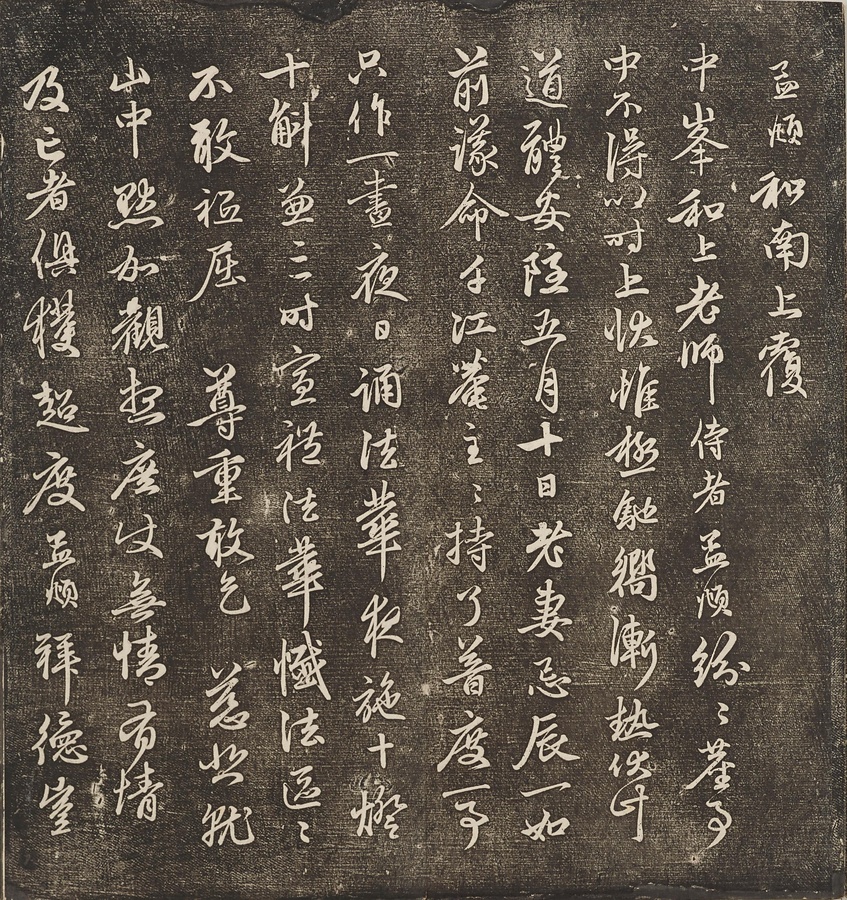 孟頫和南上覆
中峯和上老師侍者孟頫紛〻塵事
中不得以时上狀惟極馳嚮漸熱伏計
道體安隱五月十日老妻忌辰一如
前議命千江菴主〻持了普度一事
只作一晝夜日誦法華夜施十燈
十斛兼三时宣禮法華懺法區〻
不敢屈 尊重敢乞 慈悲就
山中默加觀想庶使無情有情
及亡者俱獲超度孟頫拜德豈